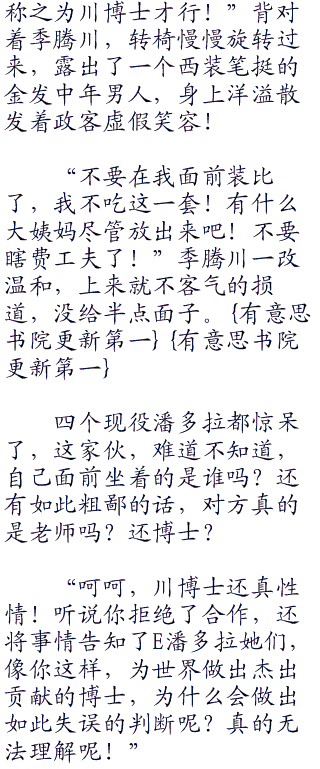 称之为川博士才行！”背对
着季腾川，转椅慢慢旋转过
来，露出了一个西装笔挺的
金发中年男人，身上洋溢散
发着政客虚假笑容！
“不要在我面前装比
了，我不吃这一套！有什么
大姨妈尽管放出来吧！不要
瞎费工夫了！”季腾川一改
温和，上来就不客气的损
道，没给半点面子。{有意思
书院更新第一}{有意思书院
更新第一}
四个现役潘多拉都惊呆
了，这家伙，难道不知道，
自己面前坐着的是谁吗？还
有如此粗鄙的话，对方真的
是老师吗？还博士？
“呵呵，川博士还真性
情！听说你拒绝了合作，还
将事情告知了E潘多拉她们，
像你这样，为世界做出杰出
贡献的博士，为什么会做出
如此失误的判断呢？真的无
法理解呢！”